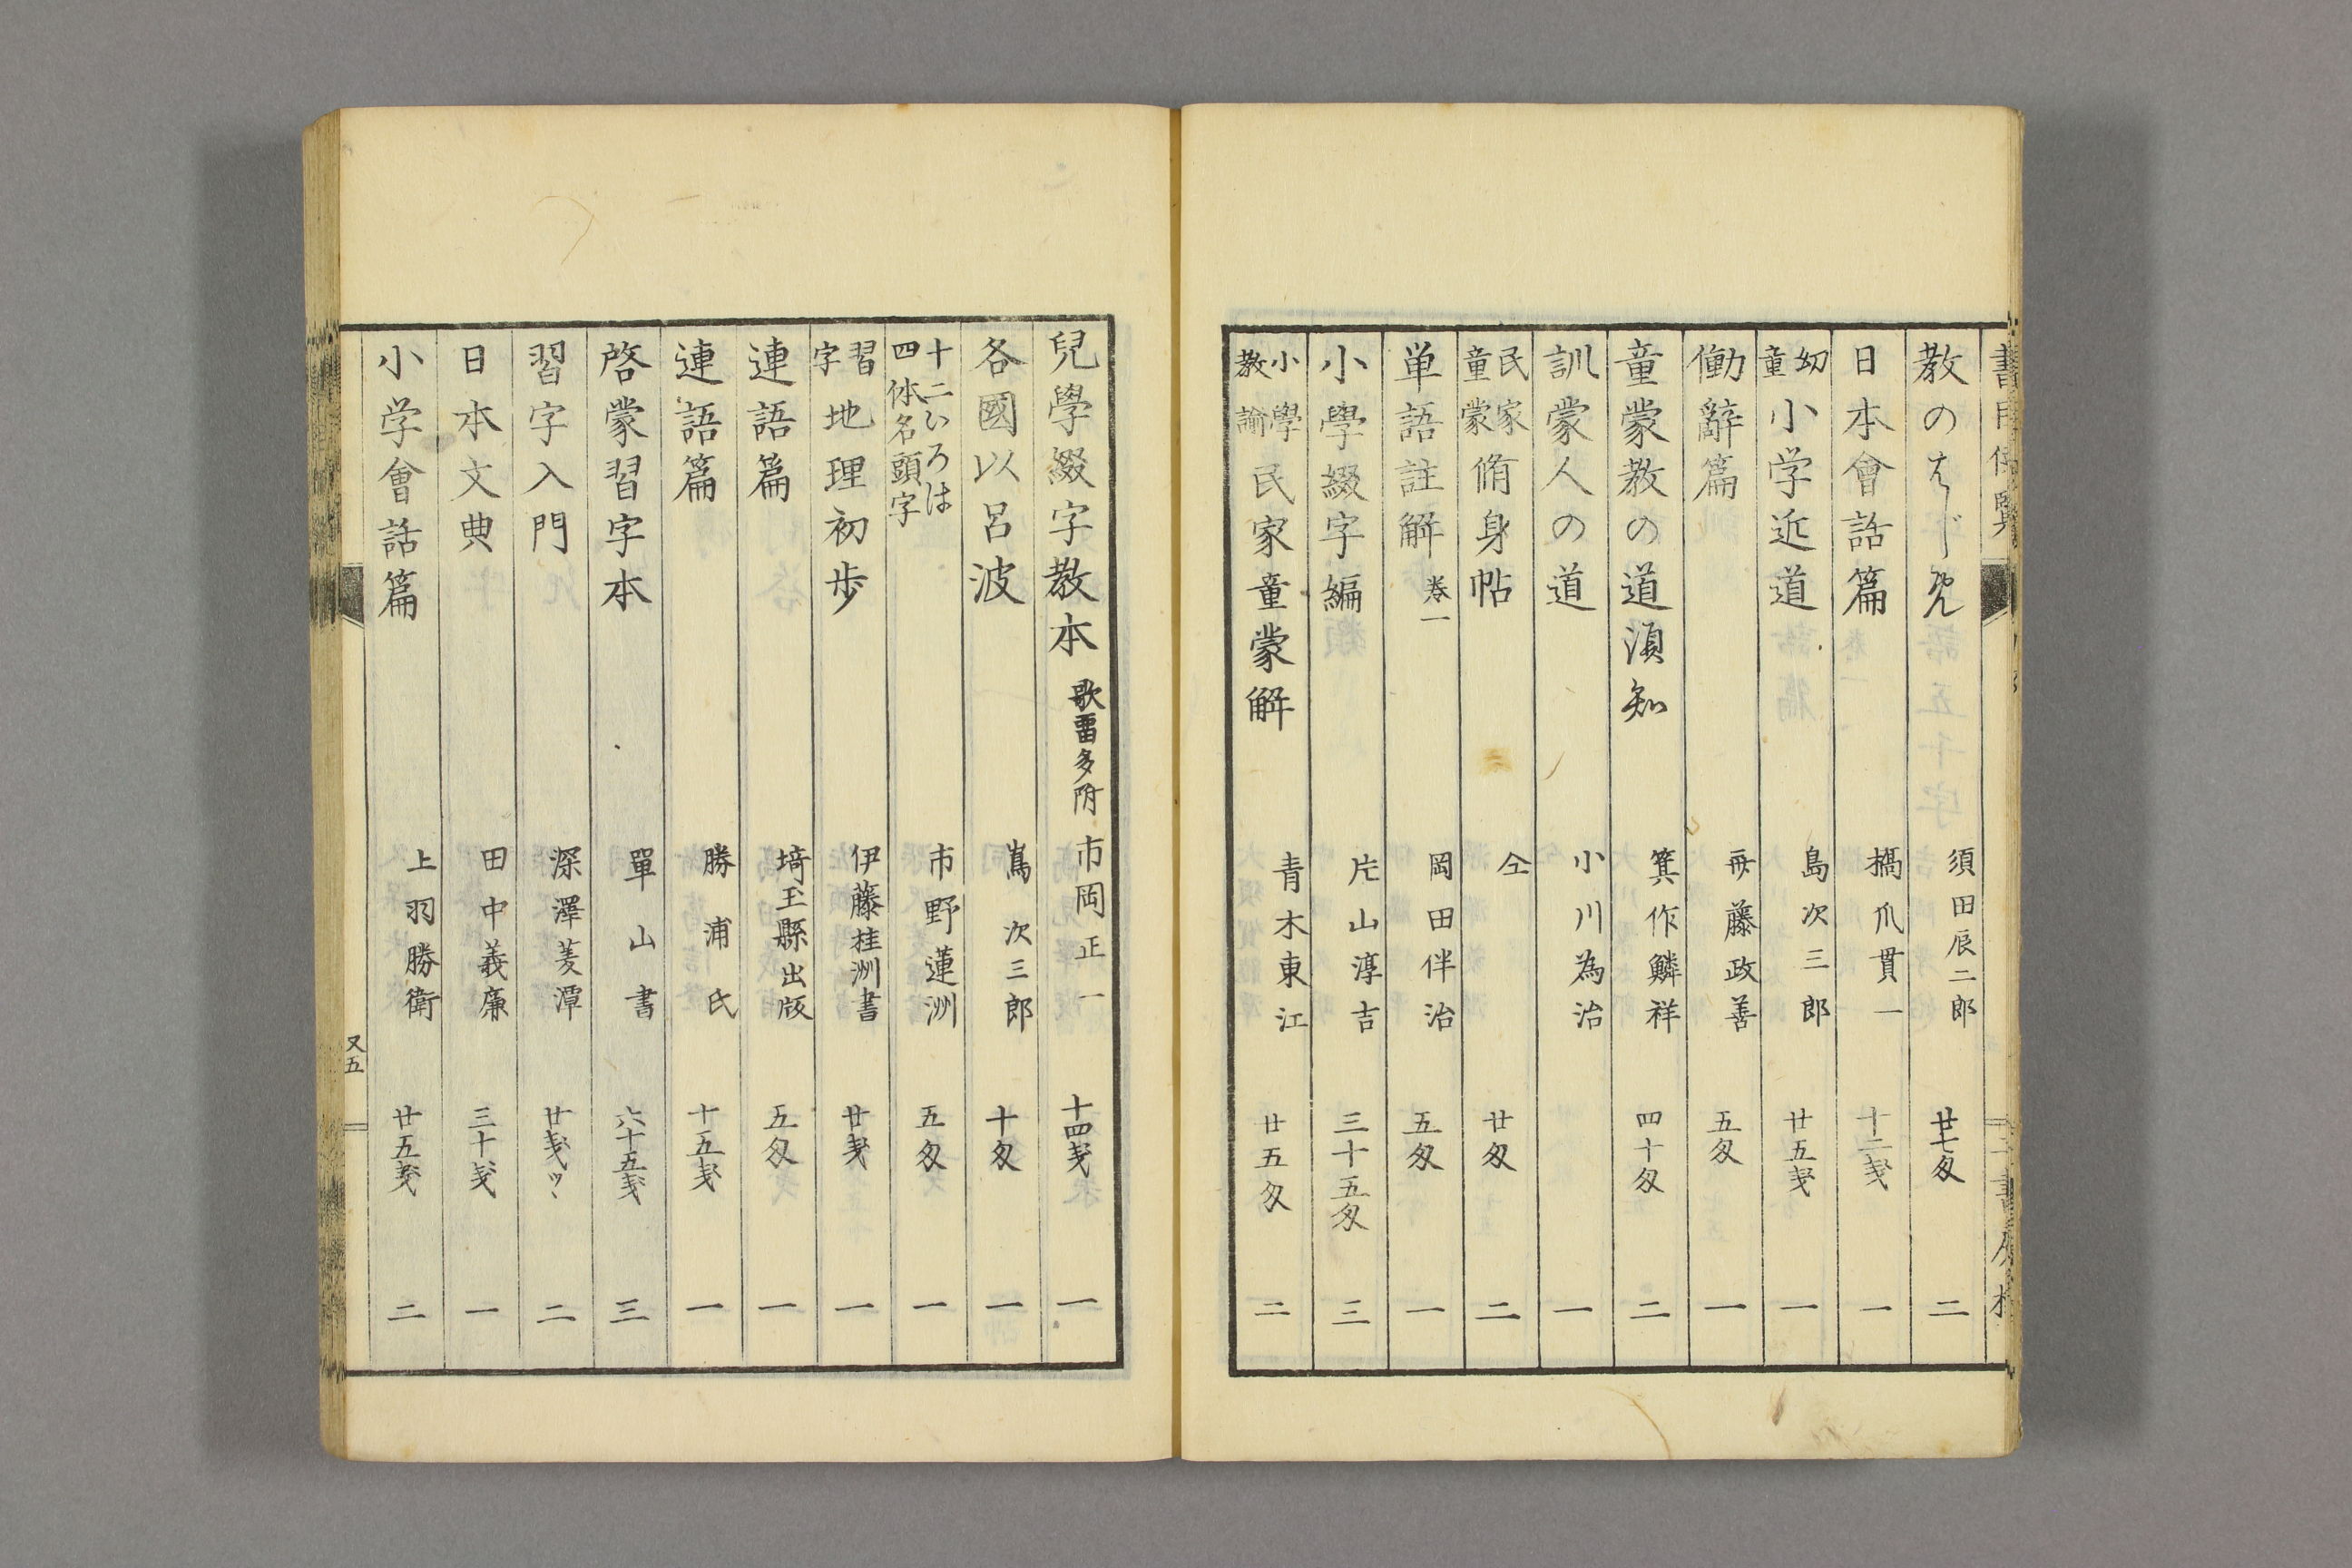 教のはじめ 須田辰二郎 廿七匁 二
日本會話篇 橋爪貫一 十二戔 一
幼童 小学近道 島次三郎 廿五戔 一
働辭篇 毋藤政善 五匁 一
童蒙教の道須知 箕作麟祥 四十匁 二
訓蒙人の道 小川為治 一
民家童蒙 脩身帖 仝 廿匁 二
単語註解 巻一 岡田伴治 五匁 一
小學綴字編 片山淳吉 三十五匁 三
小學教諭 民家童蒙解 青木東江 廿五匁 二
兒學綴字教本 歌畱多附 市岡正一 十四戔 一
各國以呂波 嶌次三郎 十匁 一
十二いろは四体名頭字 市野蓮洲 五匁 一
習字 地理初歩 伊藤桂洲書 廿戔 一
連語篇 埼玉縣出版 五匁 一
連語篇 勝浦氏 十五戔 一
啓蒙習字本 單山書 六十五戔 三
習字入門 深澤菱潭 廿戔ツヽ 二
日本文典 田中義廉 三十戔 一
小学會話篇 上羽勝衛 廿五戔 二
又五